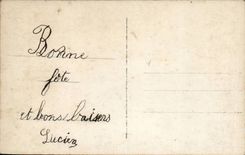 Bonne
fête
et bons baisers
Lucien